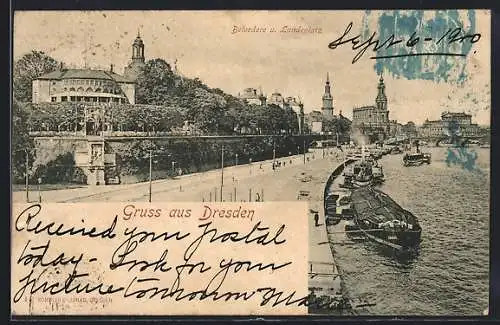 Belvedere u. Landeplatz
Sept-6-1900
Gruss aus Dresden
Received your postal
today - Look for your
picture tomorrow